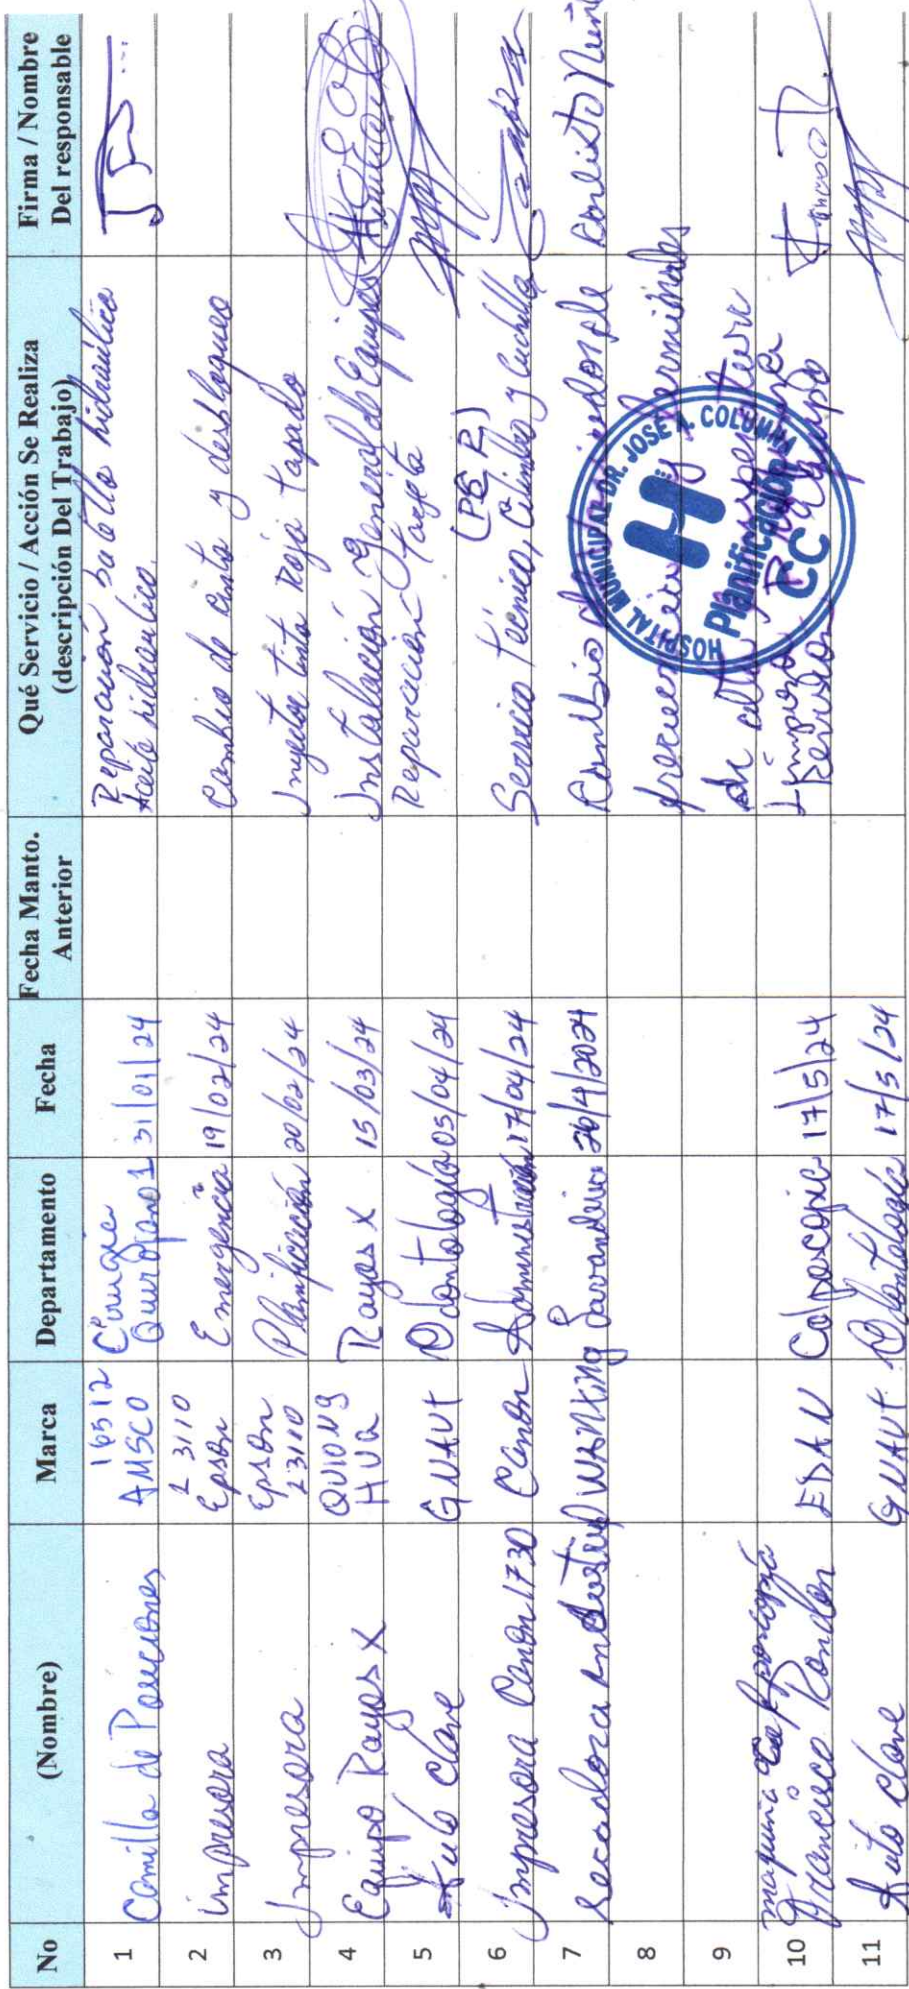 No (Nombre) Marca Departamento Fecha Fecha Manto. Anterior Qué Servicio / Acción Se Realiza (descripción Del Trabajo) Firma / Nombre Del responsable
1 Camilla de Posiciones 16512 AMSCO Cirugía Quirofano 1 31/01/24 Reparación botella hidraúlica Aceite hidraulico
2 impresora L 3110 Epson Emergencia 19/02/24 Cambio de cinta y desbloqueo
3 Impresora Epson L3110 Planificación 20/02/24 Inyector tinta Roja tapado
4 Equipo Rayos X QUIONG HUA Rayos X 15/03/24 Instalación General de Equipos
5 Auto Clave GNAUT Odontología 05/04/24 Reparación Tarjeta
6 Impresora Canon 1730 Canon Administración 17/04/24 Servicio Técnico, Cilindro y Cuchilla
7 Secadora industrial WANXING Lavanderia 26/4/2024 Cambio de
8 frecuencia y terminales
9 de alta
10 maquina Francisco Rondon EDAN Colposcopia 17/5/24 Limpieza
11 Auto clave GNAUT Odontología 17/5/24 Revision Equipo
HOSPITAL MUNICIPAL DR. JOSE A. COLUMNA
H
Planificación
CC